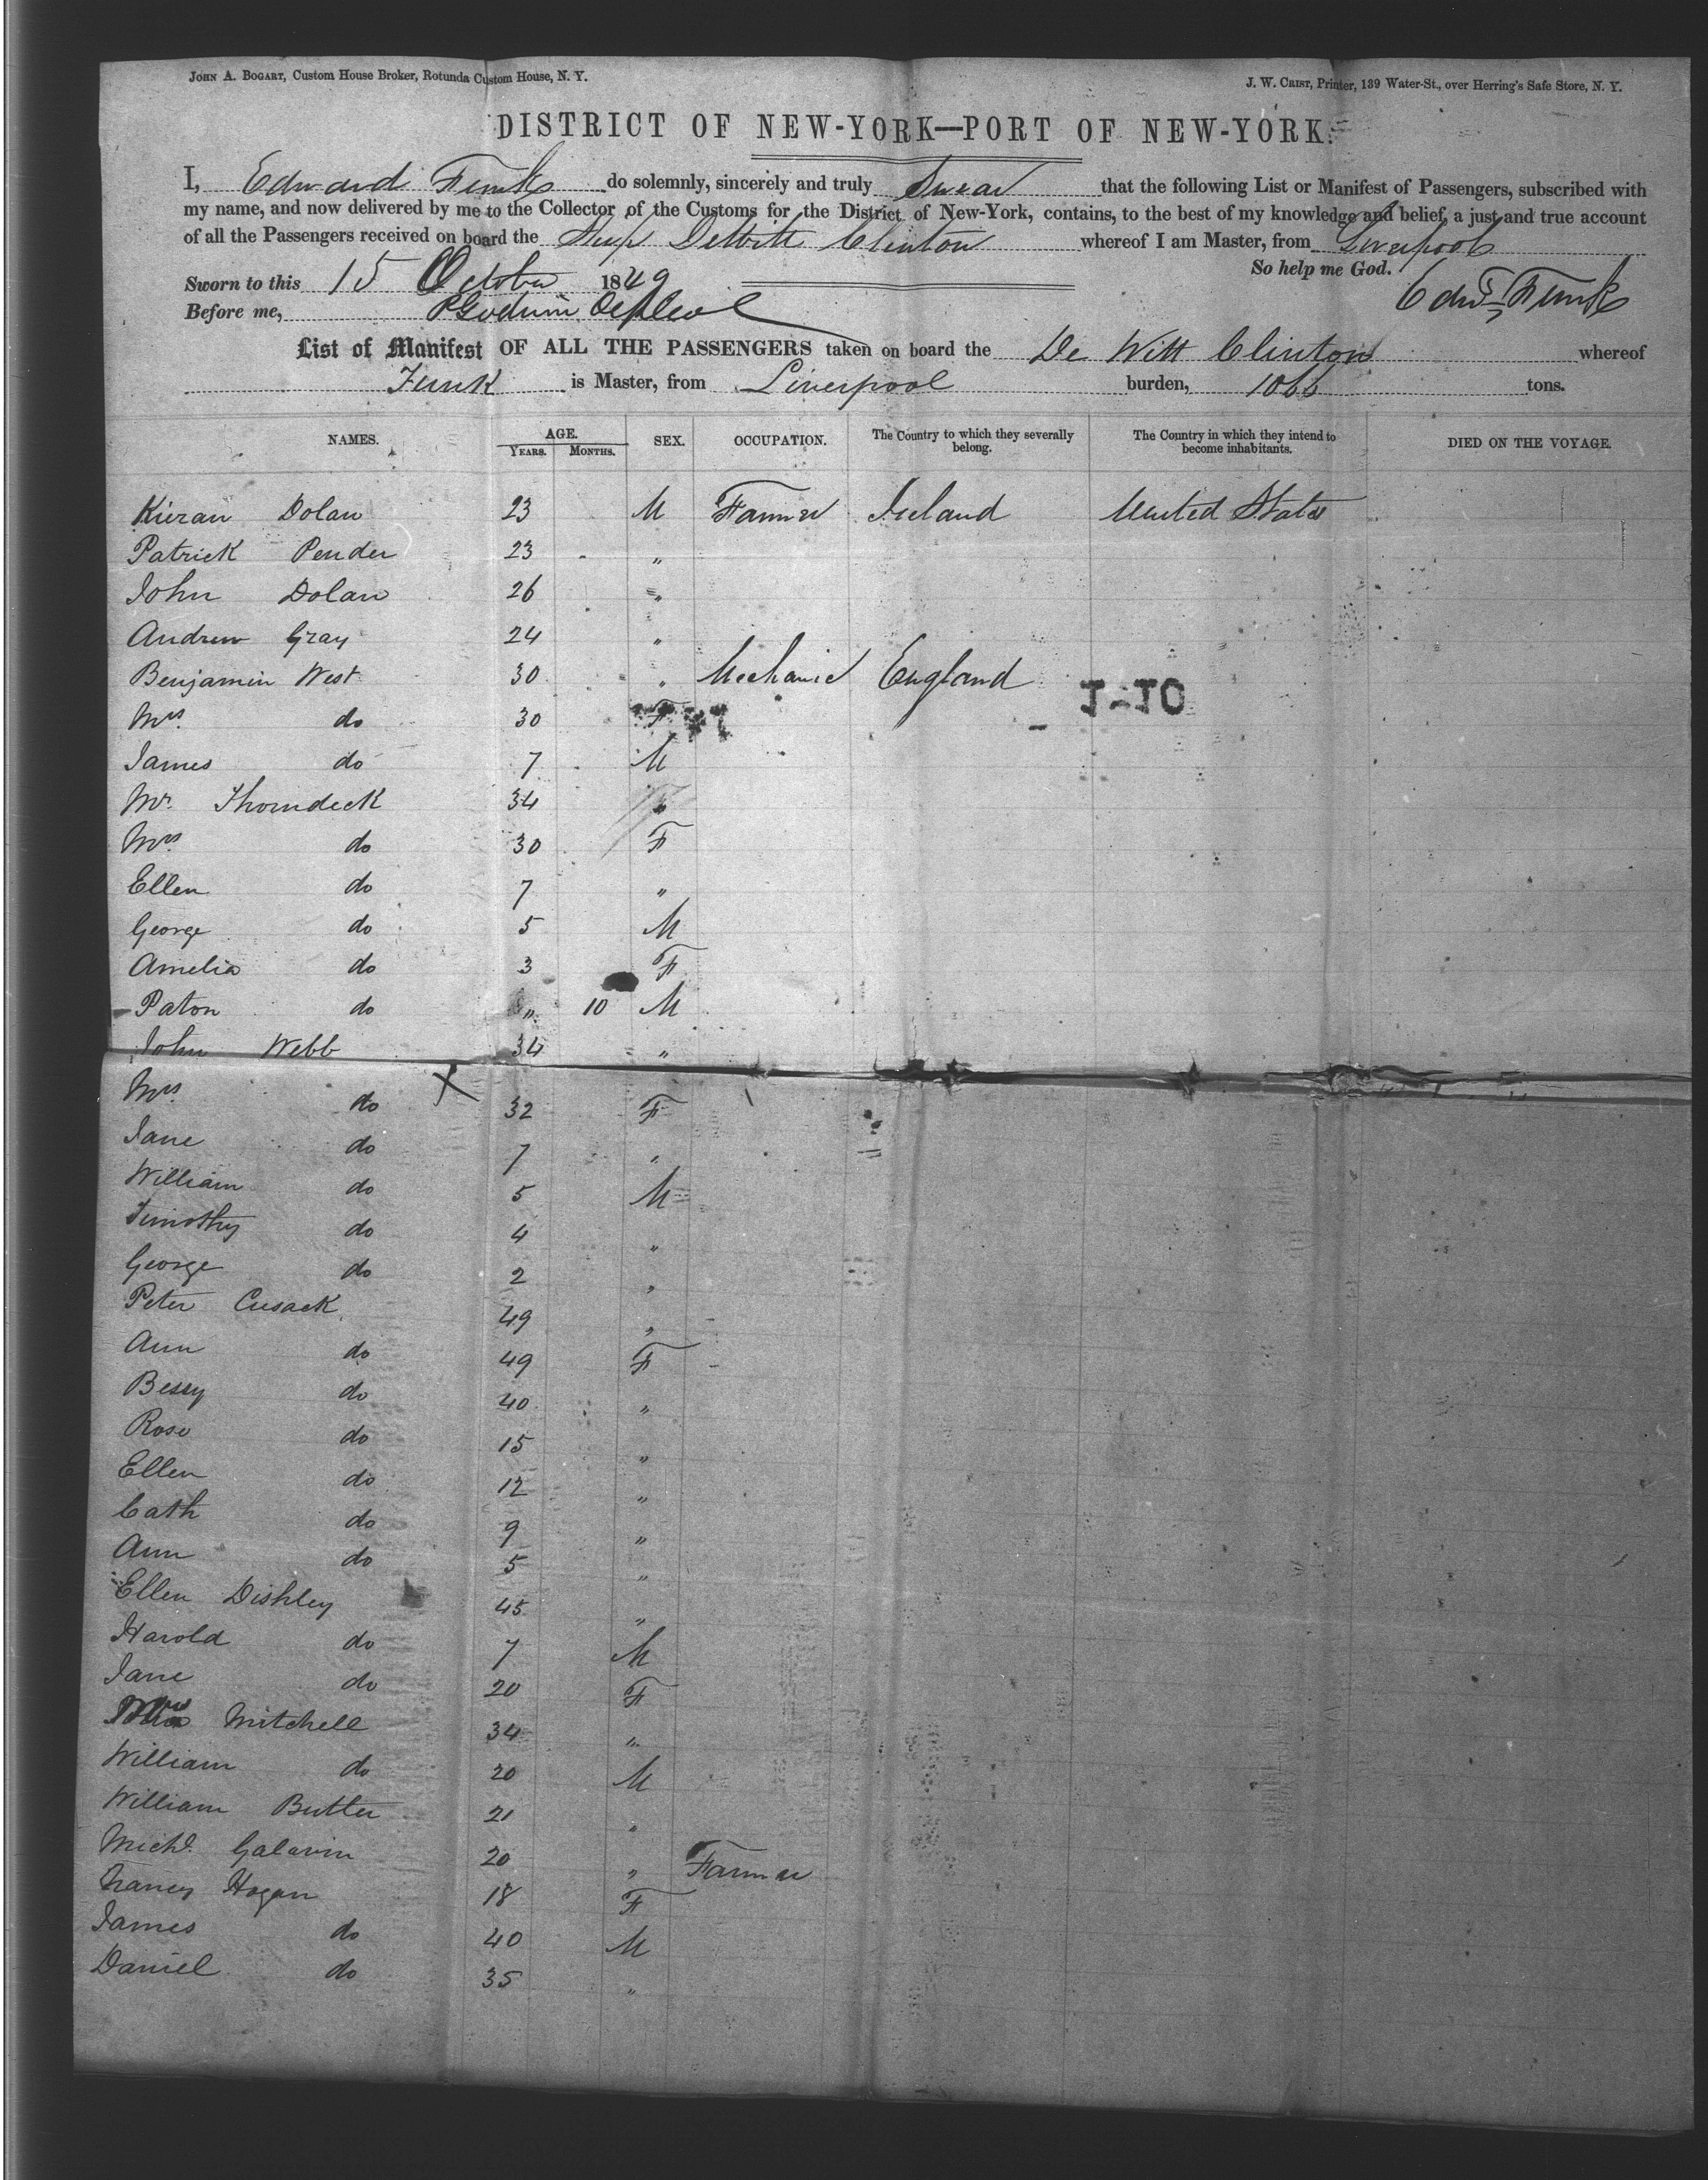 JOHN A. BOGART, Custom House Broker, Rotunda Custom House, N. Y.
J. W. CRIST, Printer, 139 Water-St., over Herring's Safe Store, N. Y.
DISTRICT OF NEW-YORK—PORT OF NEW-YORK.
I, Edward Funk do solemnly, sincerely and truly Swear that the following List or Manifest of Passengers, subscribed with
my name, and now delivered by me to the Collector of the Customs for the District of New-York, contains, to the best of my knowledge and belief, a just and true account
of all the Passengers received on board the Ship Dewitt Clinton whereof I am Master, from Liverpool
So help me God.
Sworn to this 15 October 1849
Edwd Funk
Before me,
List of Manifest OF ALL THE PASSENGERS taken on board the De Witt Clinton whereof
Funk is Master, from Liverpool burden, 1066 tons.
NAMES. AGE. YEARS. MONTHS. SEX. OCCUPATION. The Country to which they severally belong. The Country in which they intend to become inhabitants. DIED ON THE VOYAGE.
Kieran Dolan 23 M Farmer Ireland United States
Patrick Pender 23 "
John Dolan 26 "
Andrew Gray 24 "
Benjamin West 30 " Mechanic England
1-10
Mrs. do 30 F
James do 7 M
Mr. Thorndeck 34 "
Mrs. do 30 F
Ellen do 7 "
George do 5 M
Amelia do 3 F
Paton do " 10 M
John Webb 34 "
Mrs. do X 32 F
Jane do 7 "
William do 5 M
Timothy do 4 "
George do 2 "
Peter Cusack 49 "
Ann do 49 F
Bessy do 40 "
Rose do 15 "
Ellen do 12 "
Cath do 9 "
Ann do 5 "
Ellen Dishley 45 "
Harold do 7 M
Jane do 20 F
Mitchell 34 "
William do 20 M
William Butler 21 "
Michl. Galavin 20 " Farmer
Nancy Hogan 18 F
James do 40 M
Daniel do 35 "